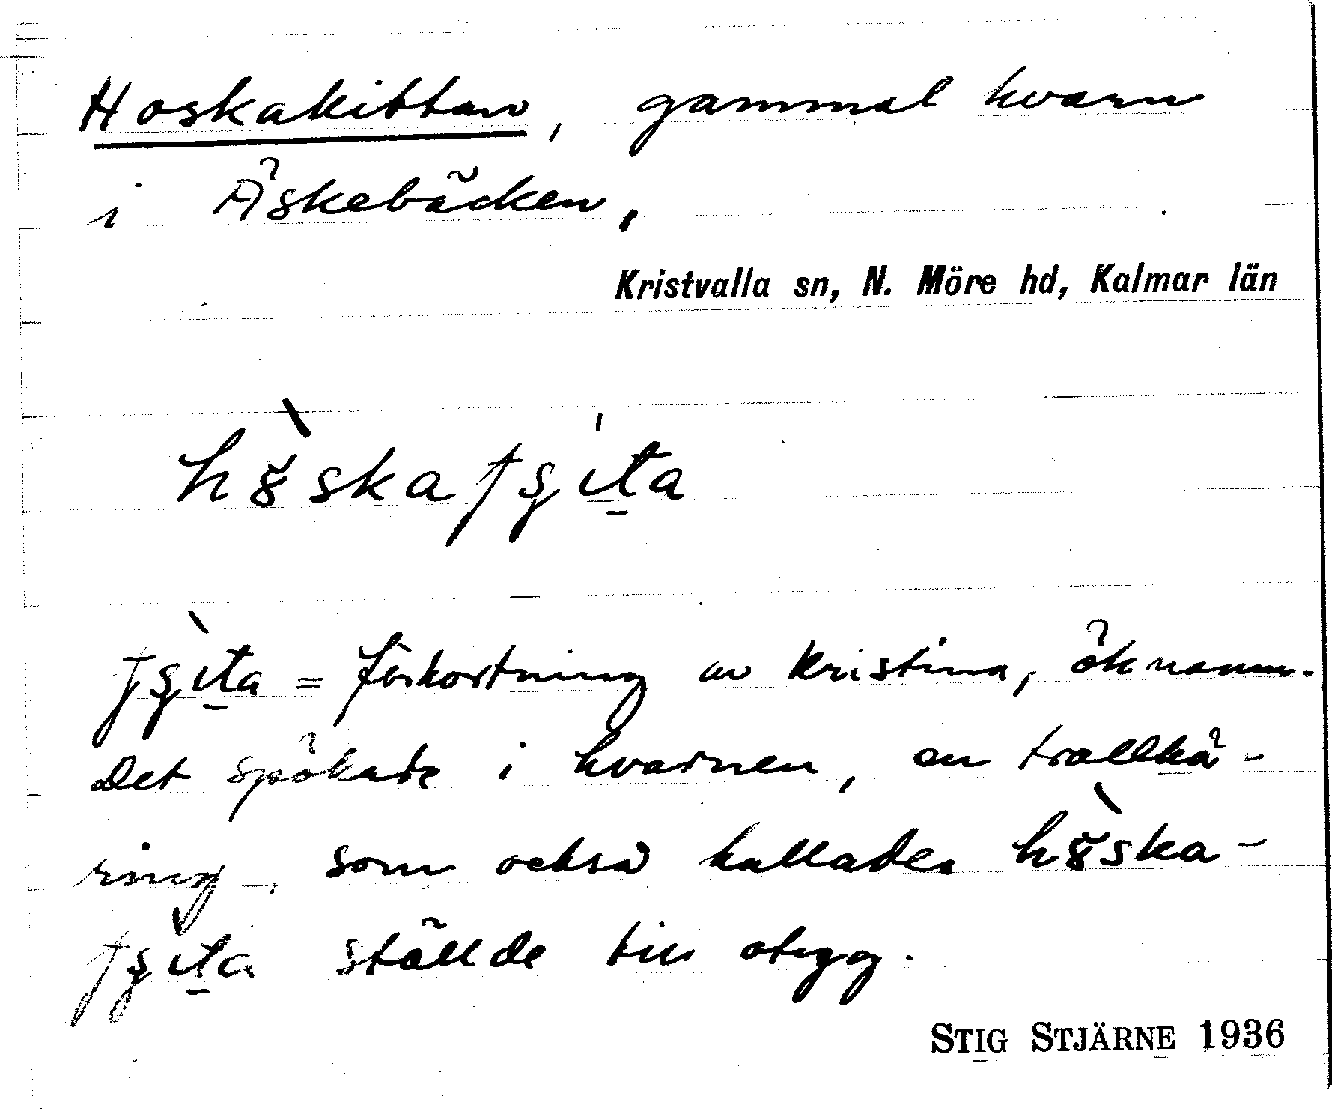 Hoskakittan, gammal kvarn
i Åskebäcken,
Kristvalla sn, N. Möre hd, Kalmar län
hòskaʃʂı́ta
ʃʂı̀ta = förkortning av Kristina, öknamn.
Det spökade i kvarnen, en trollkä-
ring, som också kallades hòska-
ʃʂı̀ta ställde till otygg.
STIG STJÄRNE 1936